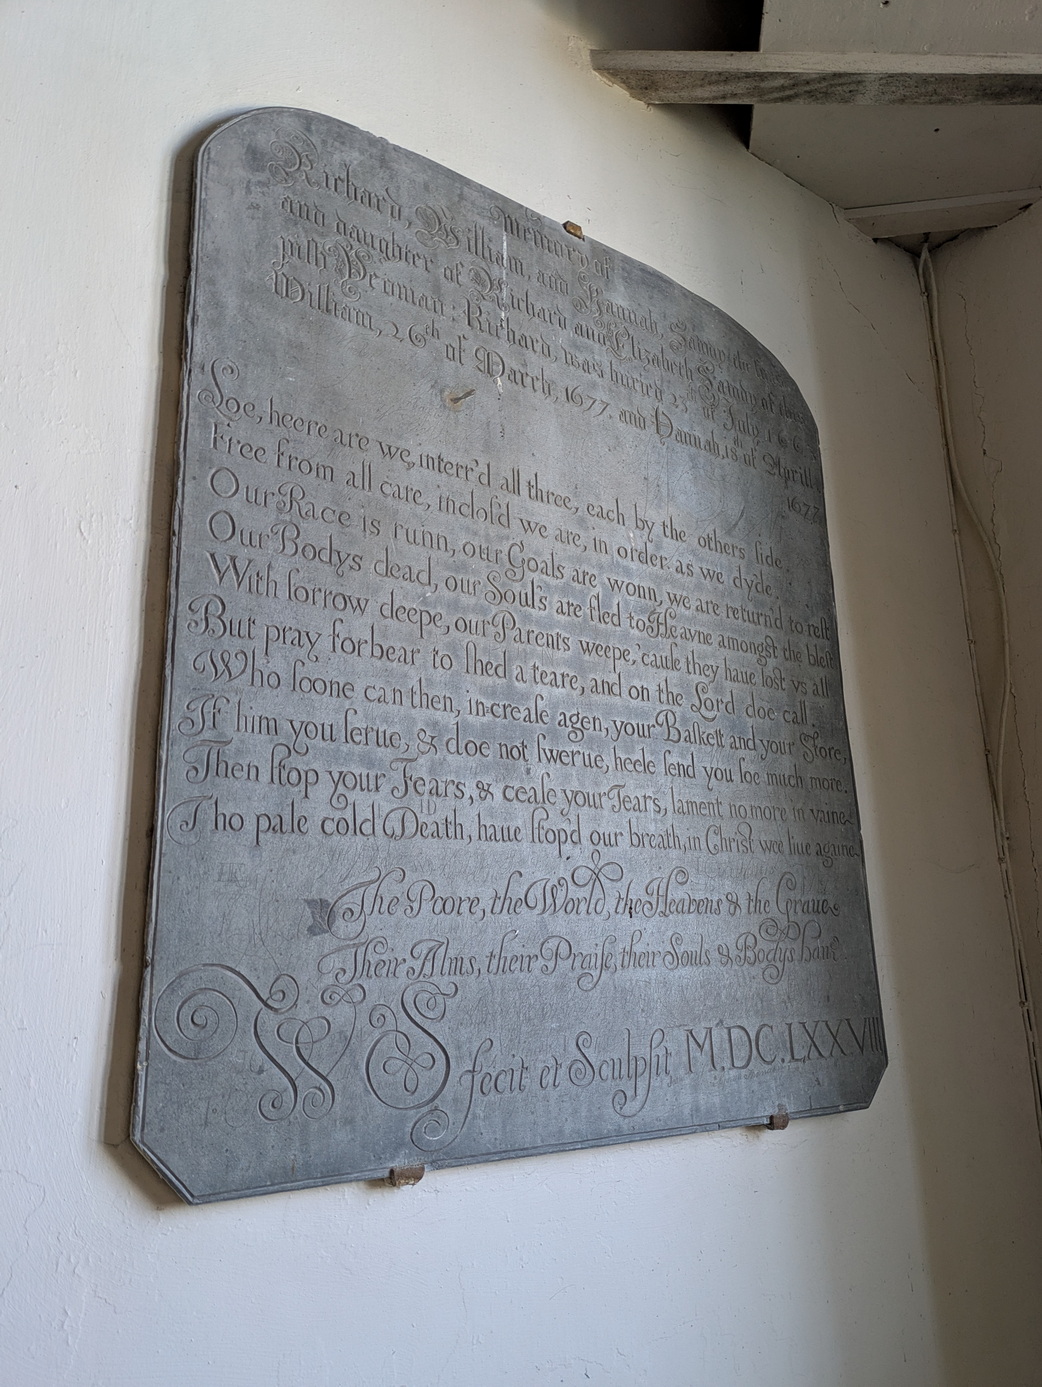 memory of
Richard, William, and Hannah,
and daughter of Richard and Elizabeth Landy of this
pish Yeoman: Richard, was buried of July,
William, 26th of March, 1677. and Hannah, 18 of Aprill
1677
Loe, heere are we, interr'd all three, each by the others ſide.
Free from all care, incloſ'd we are, in order. as we dyde.
Our Race is runn, our Goals are wonn, we are return'd to reſt
Our Bodys dead, our Soul's are fled to Heavne amongst the bleſt
With ſorrow deepe, our Parents weepe,'cauſe they haue lost vs all
But pray forbear to ſhed a teare, and on the Lord doe call.
Who ſoone can then, increaſe agen, your Baſkett and your Store,
If him you ſerue, & doe not ſwerue, heele ſend you ſoe much more.
Then ſtop your Fears, & ceaſe your Tears, lament no more in vaine
Tho pale cold Death, haue ſtopd our breath, in Christ wee liue againe
The Poore, the World, the Heavens & the Graue
Their Alms, their Praiſe, their Souls & Bodys haue
W S fecit et Sculpſit M.DC.LXXVIII